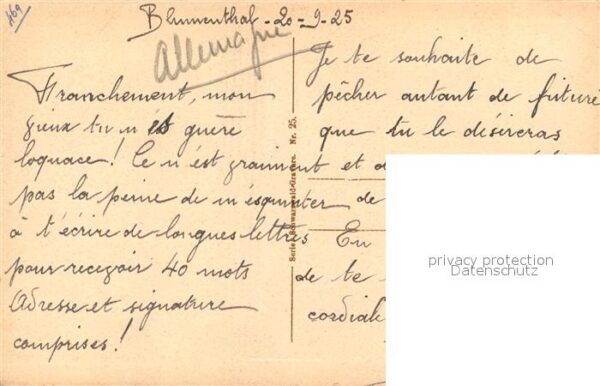 469
Blumenthal - 20-9-25
Allemagne
Franchement, mon
vieux tu n'es guère
loquace! Ce n'est vraiment
pas la peine de m'esquinter
à t'écrire de longues lettres
pour recevoir 40 mots
Adresse et signature
comprises!
Serie: Schwarzwald-Grüsse Nr. 25.
Je te souhaite de
pêcher autant de
que tu le désireras
et d
de
En
de te
cordiale
privacy protection
Datenschutz